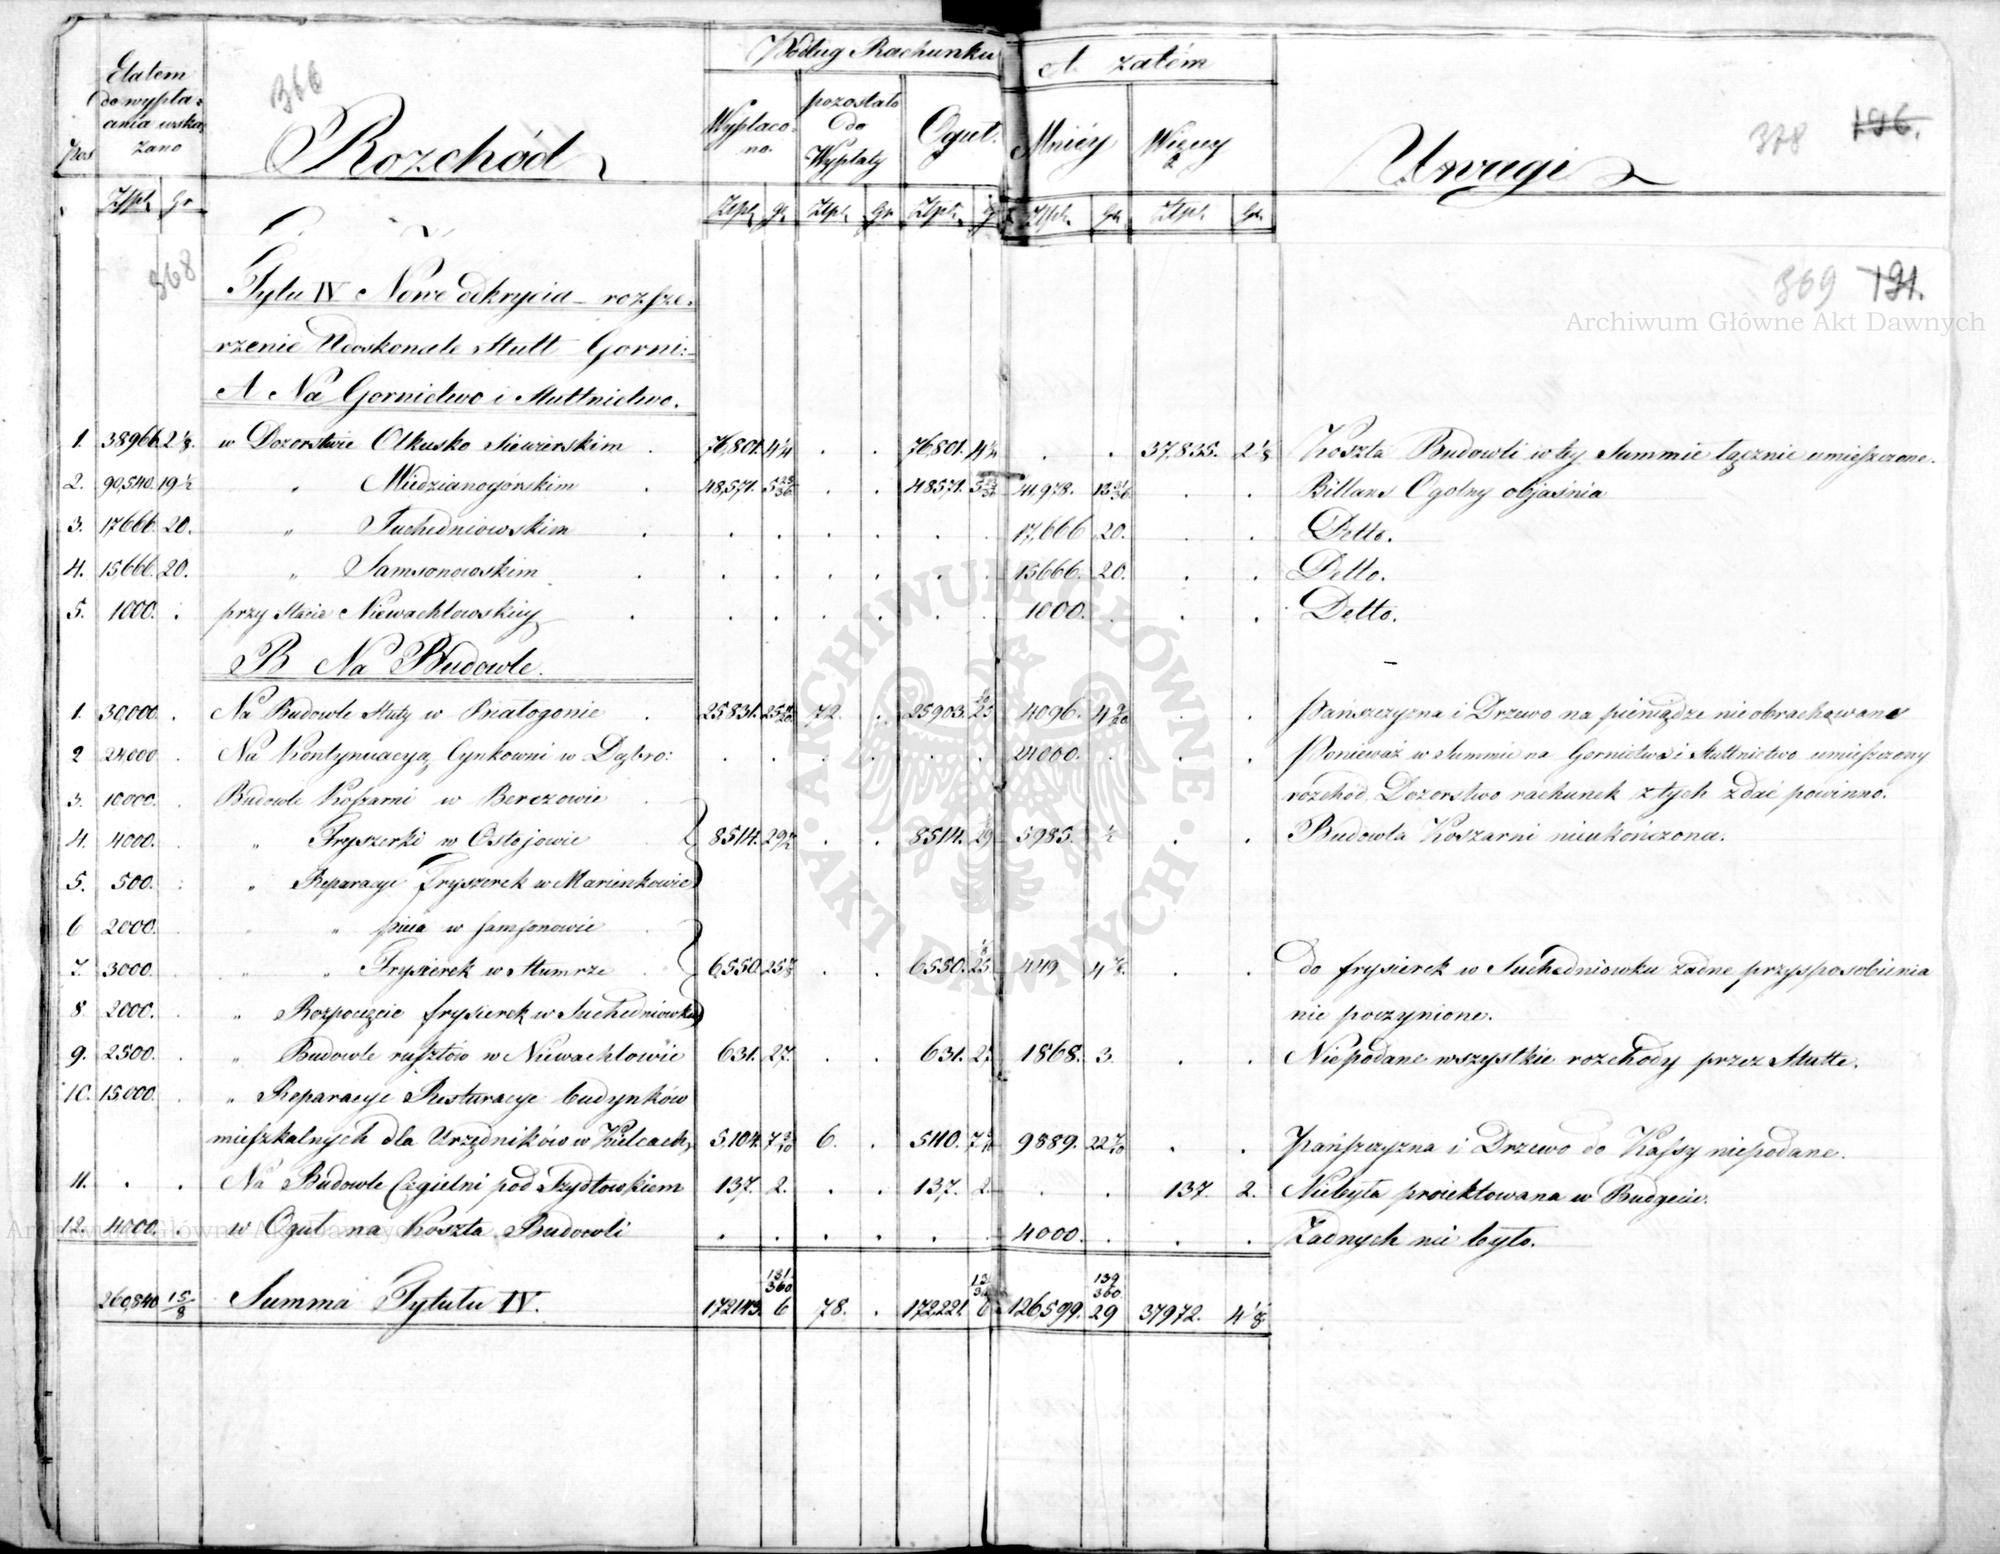 Podług Rachunku A zatém
Pos Etatem do wypłacania wskazano Rozchód Wypłacono. pozostało do Wypłaty Ogut. Mniéy Więcey Uwagi
366 378 196.
Złpl. Gr. Złpl. gr. Złpl. Gr. Złpl. g Złpl. Gr. Złpl. Gr.
368 369 191.
Archiwum Główne Akt Dawnych
Tytu IV Nowe odkrycia rozsze-
rzenie Udoskonale Hutt Gorni:
A Na Gornictwo i Huttnictwo.
1. 38966. 2 1/8. w Dozorstwie Olkusko Siewierskim . 76,801. 4 1/4 . . 76,801. 4 1/4 . . 37,835. 2 1/8 Koszta Budowli w tey Summie łącznie umieszczone.
2. 90,540. 19 1/2 " Miedzianogórskim . 48,571. 5 . . 48571. 5 41,978. 13 . . Billans Ogolny objaśnia
3. 17666. 20. " Suchedniowskim . . . . . . . 17,666 20. . . Detto.
4. 15666. 20. " Samsonowskim . . . . . . . 15666. 20. . . Detto.
5. 1000. . przy Hucie Niewachlowskiey . . . . . . . 1000. . . . Detto.
B Na Budowle.
1. 30,000. . Na Budowle Huty w Białogonie . 25831. 25 72. . 25903. 25 4096. 4 9/20 . . Pańszczyzna i Drzewo na pieniądze nie obrachowane
2 24000 . Na Kontynuacyą Cynkowni w Dąbro: . . . . . . 24000. . . . Ponieważ w Summie na Gornictwo i Huttnictwo umieszczony
3. 10000. . Budowle Koszarni w Berezowie . rozchód, Dozorstwo rachunek z tych zdać powinno.
4. 4000. . " Fryszerki w Ostojowie 8514. 29 1/2 . . 8514. 29 5985. 1/2 . . Budowla Koszarni nieukończona.
5. 500. : " Reparacye Fryszerek w Marienkowie
6 2000. . " " pieca w Samsonowie .
7. 3000. . " " Fryszerek w Humrze . 6,550. 25 . . 6550. 25 449 4 . . do fryszerek w Suchedniowku żadne przysposobienia
8 2000. . " Rozpoczęcie fryszerek w Suchedniowku nie poczynione.
9. 2500. . " Budowle rusztów w Niewachlowie 631. 27. . . 631. 27 1868. 3. . . Niepodane wszystkie rozchody przez Hutte.
10. 15,000. . " Reparacye Resturacye budynków
mieszkalnych dla Urzędników w Kielcach, 5,104. 7 6. . 5110. 7 9889. 22 . . Pańszczyzna i Drzewo do Kassy niepodane.
11. . . Na Budowle Cegielni pod Szydłowkiem 137. 2. . . 137. 2. . . 137. 2. Niebyła proiektowana w Budgecie.
12. 4000. . w Ogut na Koszta Budowli . . . . . . 4000. . . . Żadnych nie było.
260,840 15/8 Summa Tytułu IV. 172143. 6 131/360 78. . 172,221. 6 126,599. 29 139/360. 37972. 4 1/8
ARCHIWUM GŁÓWNE · AKT DAWNYCH ·
Archiwum Główne Akt Dawnych